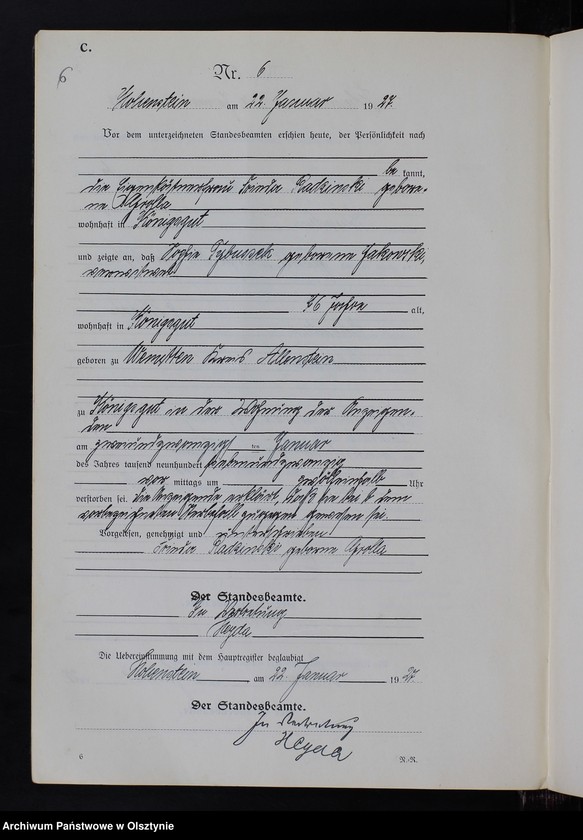 C.
6
Nr. 6
Hohenstein am 22. Januar 1927.
Vor dem unterzeichneten Standesbeamten erschien heute, der Persönlichkeit nach
be kannt,
die Frieda Sadzinski gebore-
ne Grolla
wohnhaft in Königsgut
und zeigte an, daß Sophie geborene
verwitwet
76 Jahre alt,
wohnhaft in Königsgut
geboren zu Wemitten Kreis Allenstein
zu Königsgut in der Wohnung der Anzeigen-
den
am zweiundzwanzigsten Januar
des Jahres tausend neunhundert siebenundzwanzig
vor mittags um Uhr
verstorben sei. Die Anzeigende erklärt, daß sie bei dem
vorbezeichneten Sterbefall zugegen gewesen sei.
Vorgelesen, genehmigt und unterschrieben
Frieda Sadzinski geborene Grolla
Der Standesbeamte.
In Vertretung
Heyda
Die Uebereinstimmung mit dem Hauptregister beglaubigt
Hohenstein am 22. Januar 1927.
Der Standesbeamte.
In Vertretung
Heyda
6 R.-R.
Archiwum Państwowe w Olsztynie